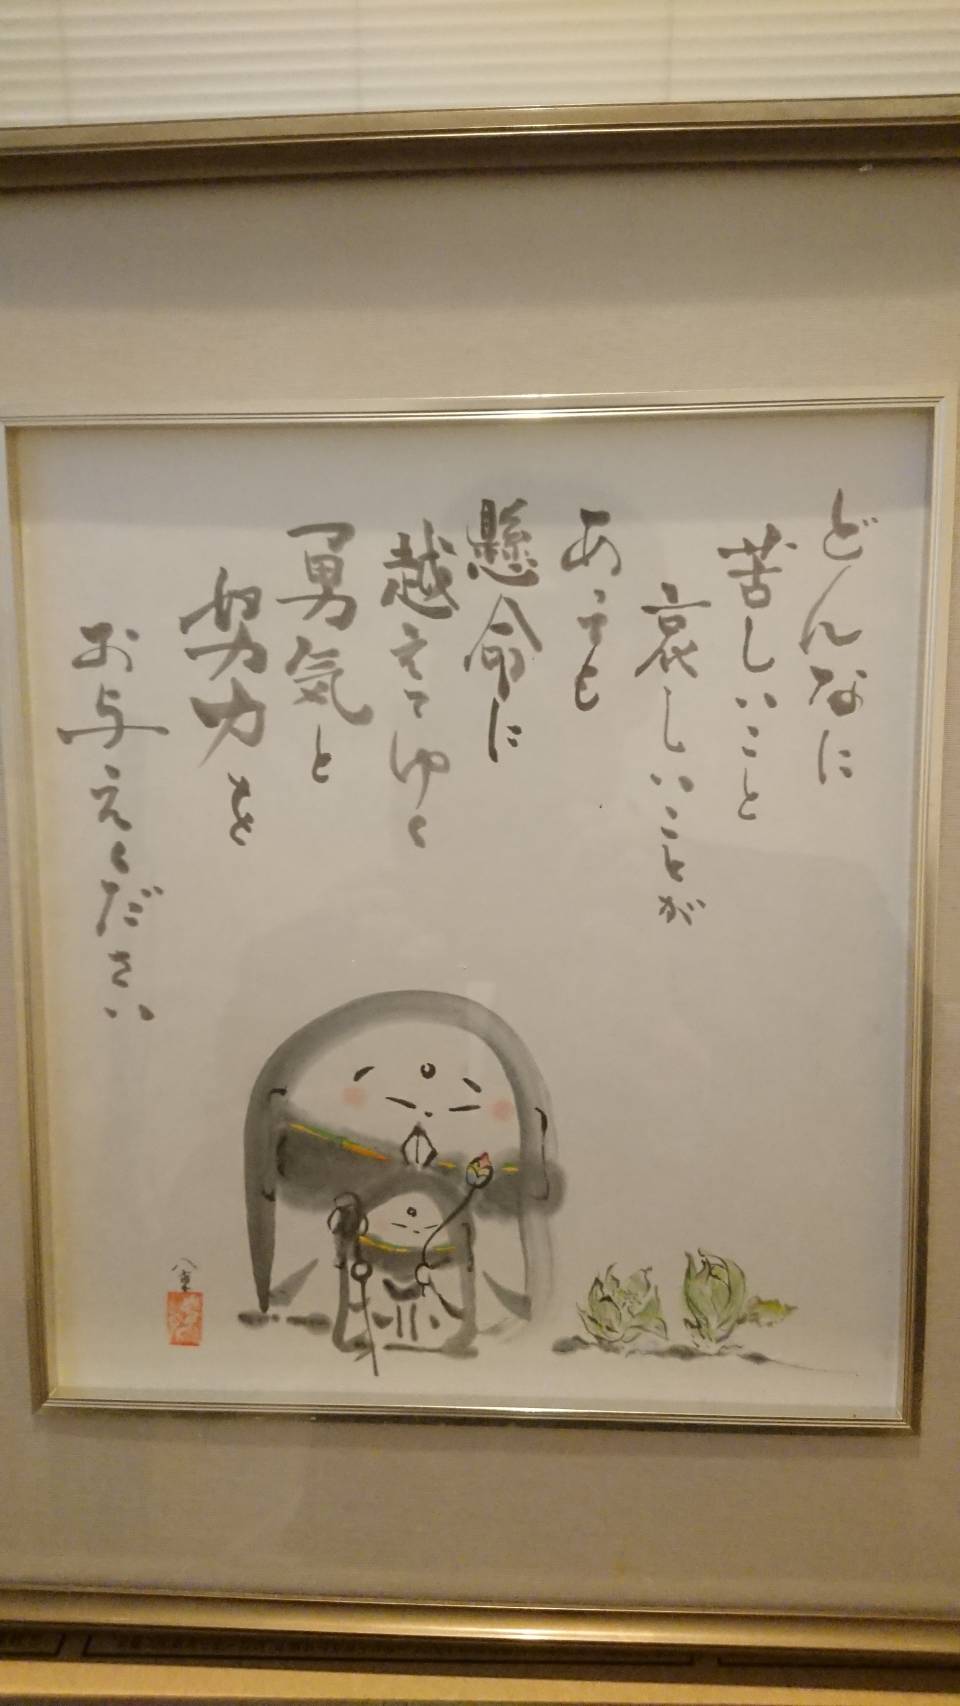 どんなに
苦しいこと
哀しいことが
あっても
懸命に
越えてゆく
勇気と
努力を
お与えください
八重